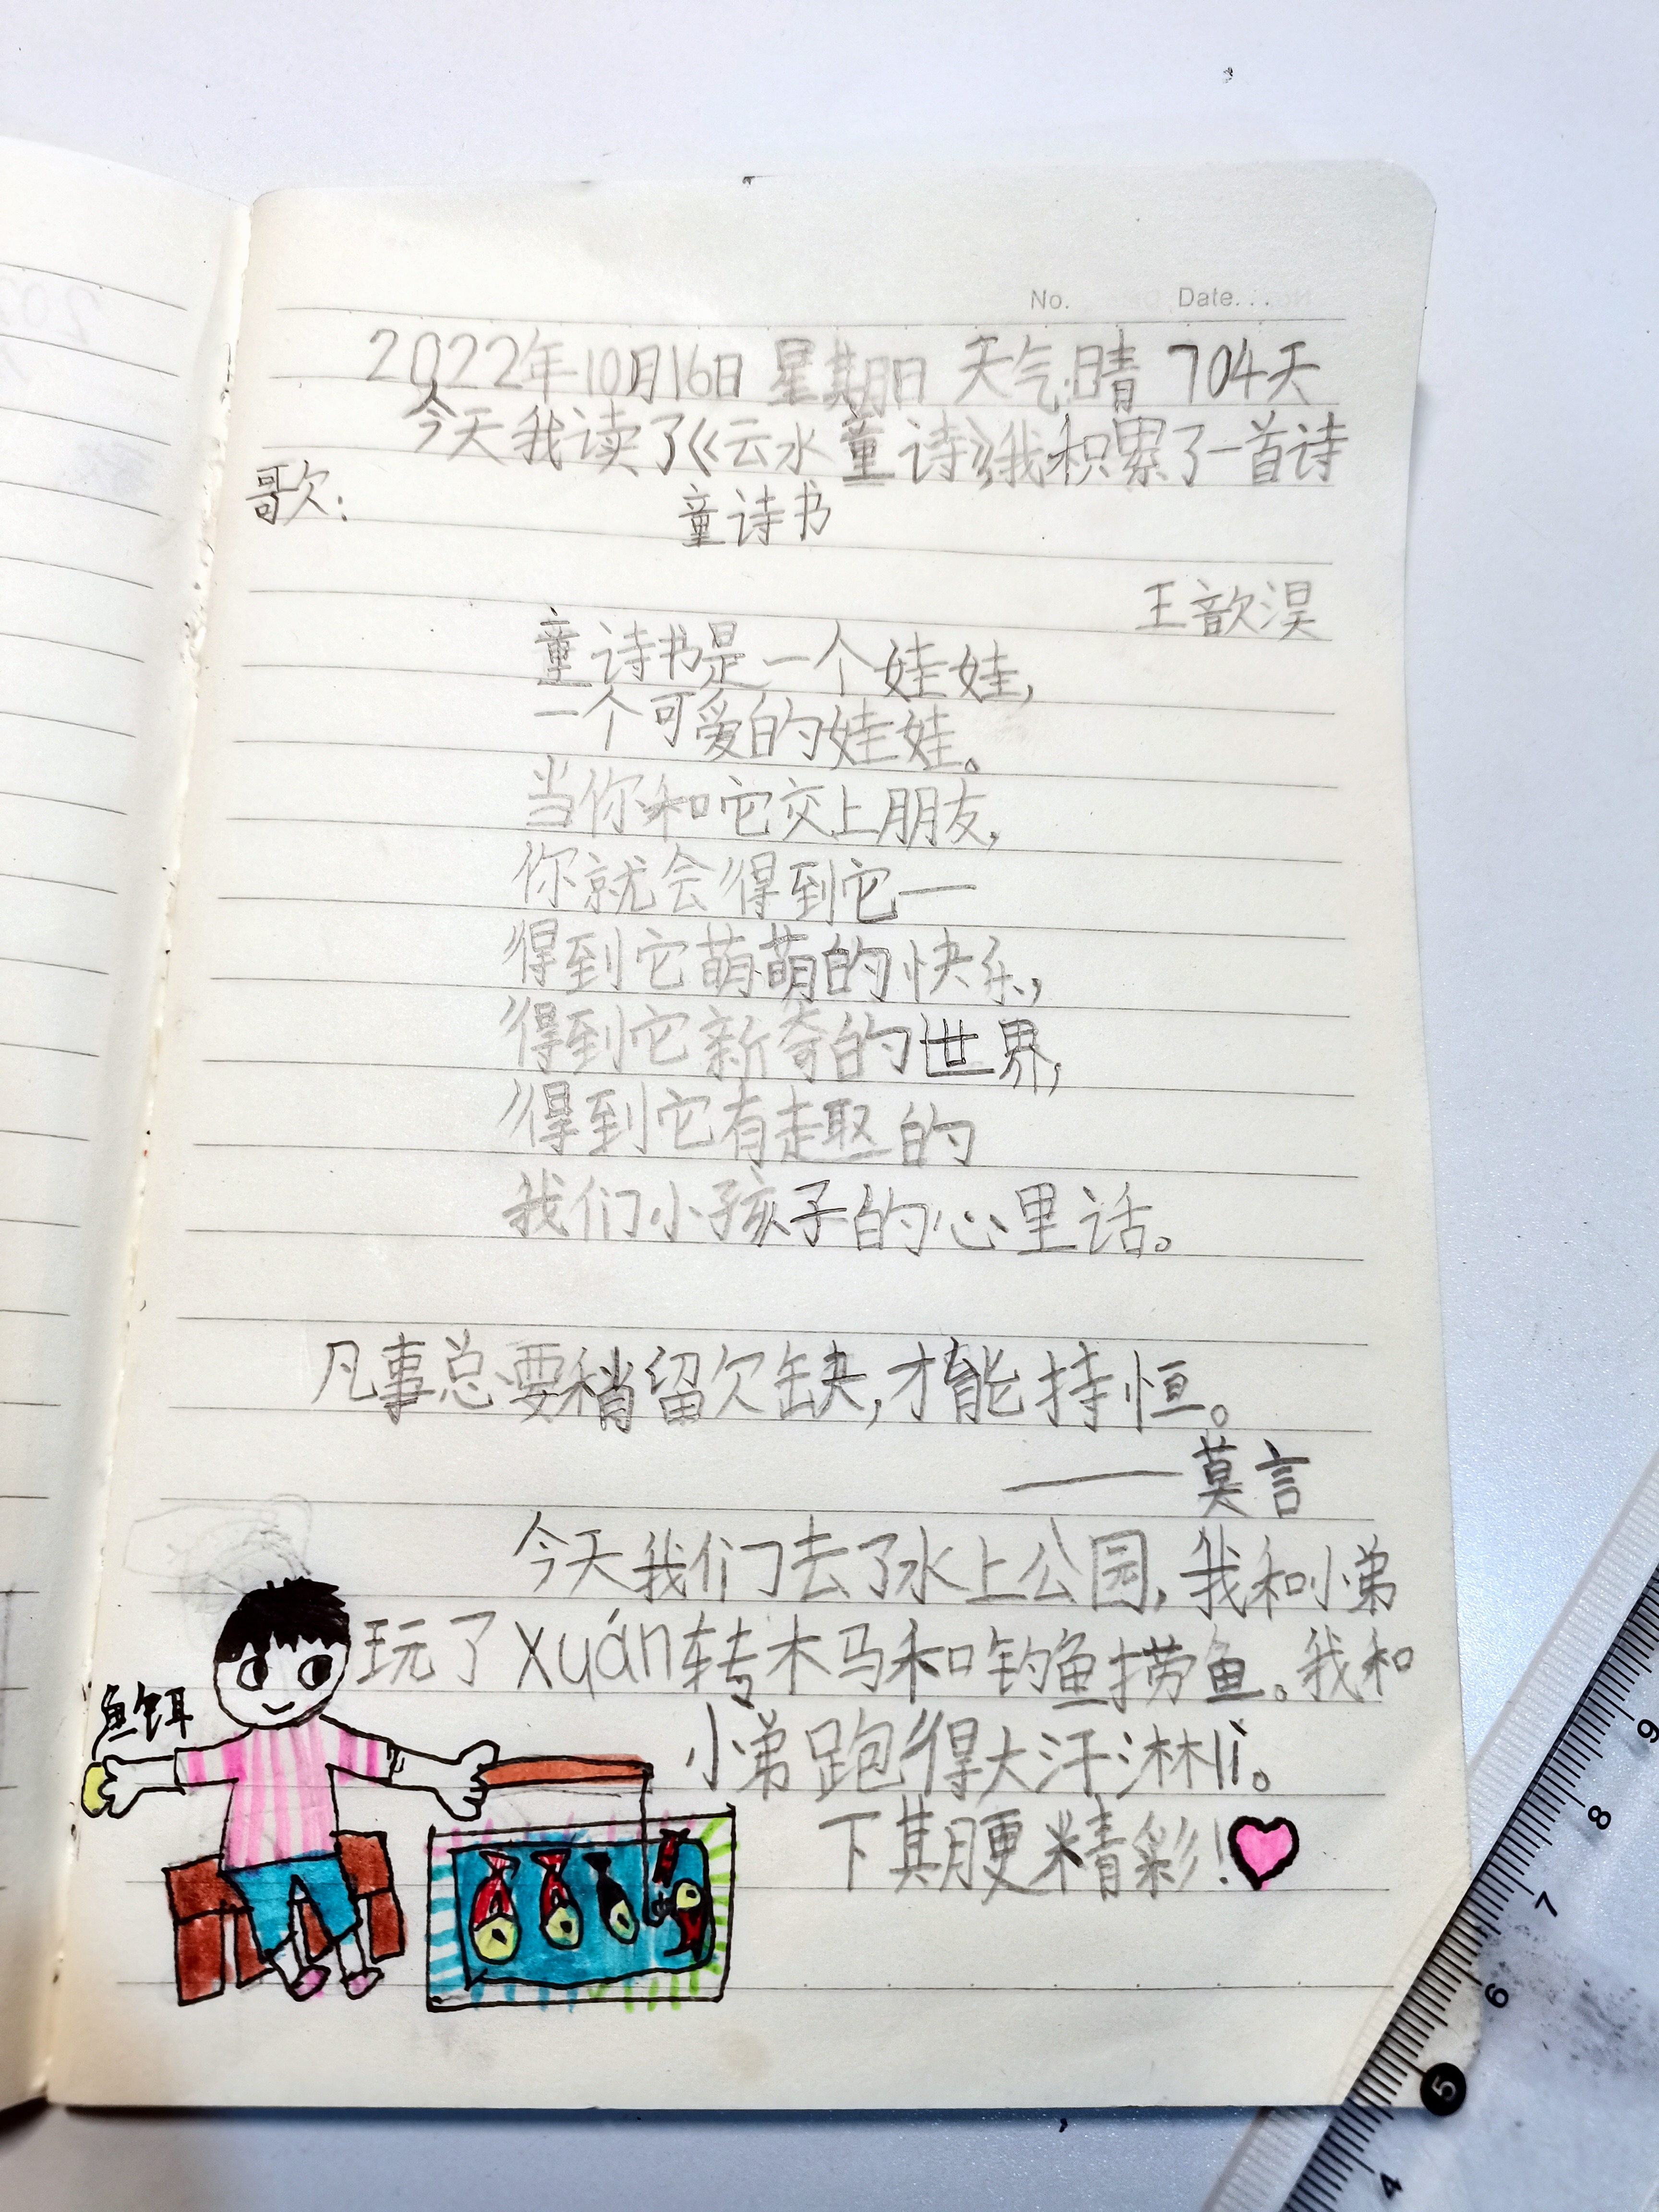 No. Date...
2022年10月16日 星期日 天气:晴 704天
今天我读了《云水童诗》我积累了一首诗
歌:
童诗书
王歆淏
童诗书是一个娃娃,
一个可爱的娃娃。
当你和它交上朋友,
你就会得到它一
得到它萌萌的快乐,
得到它新奇的世界,
得到它有趣的
我们小孩子的心里话。
凡事总要稍留欠缺,才能持恒。
——莫言
今天我们去了水上公园,我和小弟
玩了xuán转木马和钓鱼捞鱼。我和
鱼饵
小弟跑得大汗淋lí。
下期更精彩!
9
8
7
6
5
4